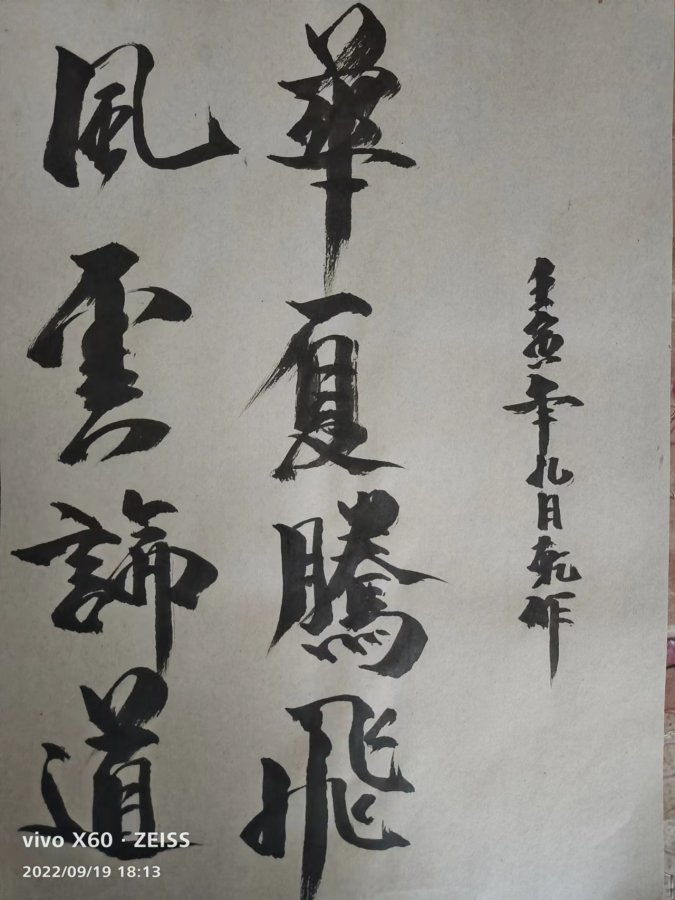 華夏騰飛
風雲論道
壬寅年九月乾作
vivo X60 · ZEISS
2022/09/19 18:13